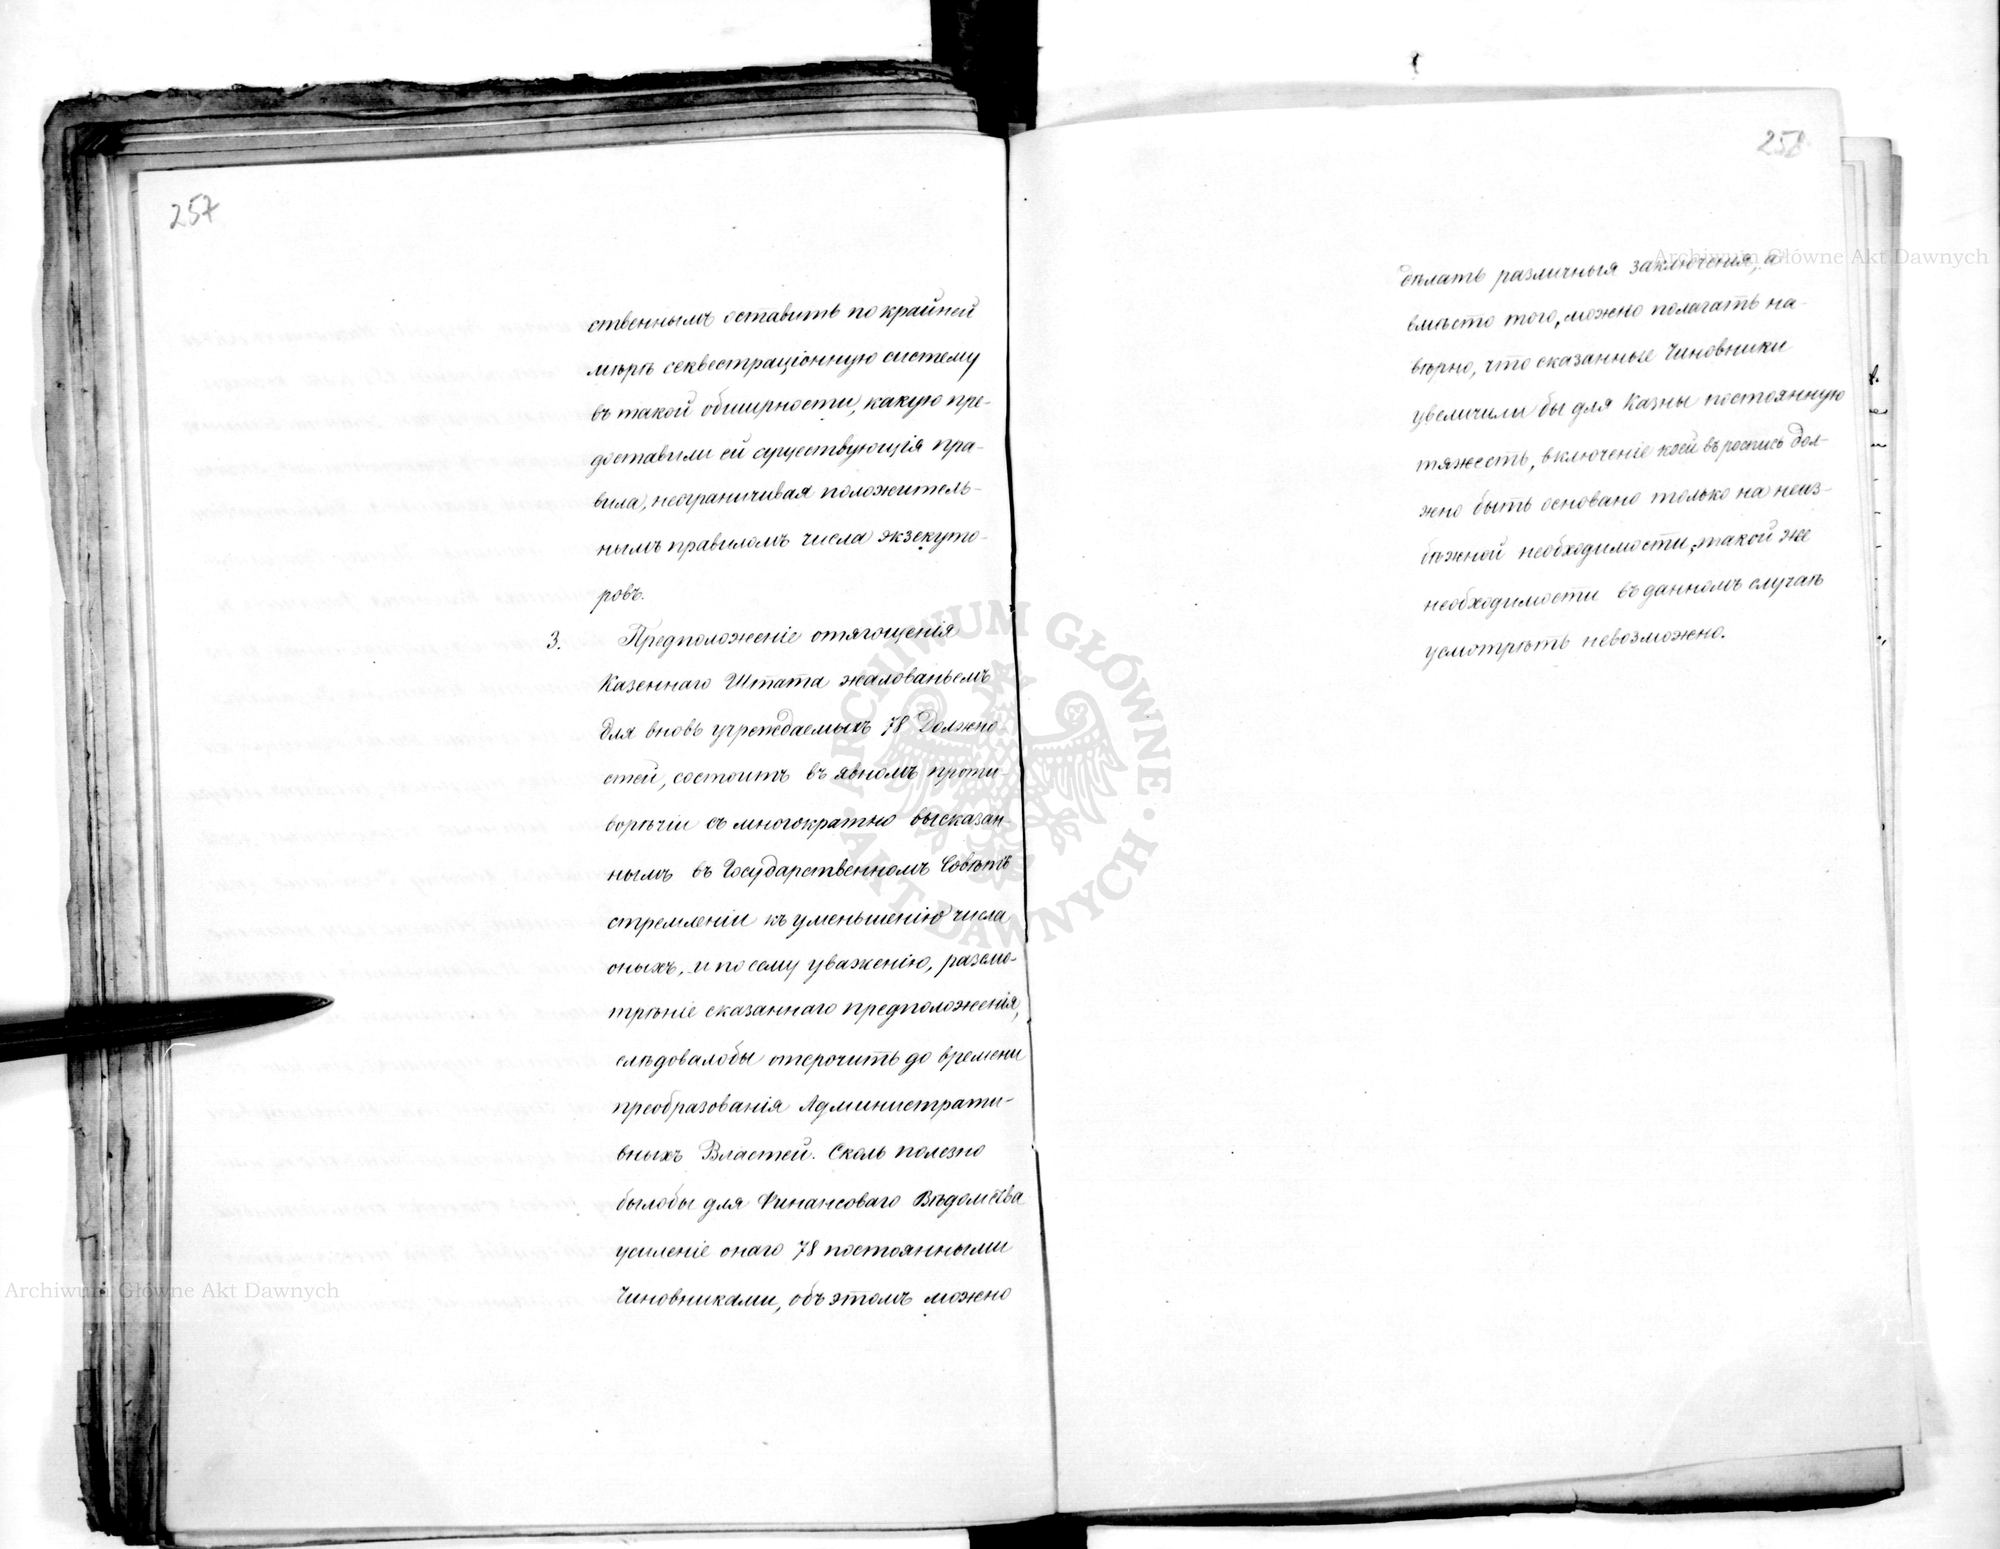 257
ственнымъ оставить по крайней
мѣрѣ секвестраціонную систему
въ такой обширности, какую пре-
доставили ей существующія пра-
вила, неограничивая положитель-
нымъ правиломъ числа экзекуто-
ровъ.
3. Предположеніе отягощенія
Казеннаго Штата жалованьемъ
для вновь учреждаемыхъ 78 Должно-
стей, состоитъ въ явномъ проти-
ворѣчіи съ многократно высказан-
нымъ въ Государственномъ Совѣтѣ
стремленіи къ уменьшенію числа
оныхъ, и по сему уваженію, разсмо-
трѣніе сказаннаго предположенія,
слѣдовалобы отсрочить до времени
преобразованія Администрати-
вныхъ Властей. Сколь полезно
былобы для Финансоваго Вѣдомства
усиленіе онаго 78 постоянными
Чиновниками, объ этомъ можно
258
дѣлать различныя заключенія, а
вмѣсто того, можно полагать на-
вѣрно, что сказанные Чиновники
увеличили бы для Казны постоянную
тяжесть, включеніе коей въ роспись дол-
жно быть основано только на неиз-
бѣжной необходимости, такой же
необходимости въ данномъ случаѣ
усмотрѣть невозможно.
Archiwum Główne Akt Dawnych
Archiwum Główne Akt Dawnych
ARCHIWUM GŁÓWNE AKT DAWNYCH